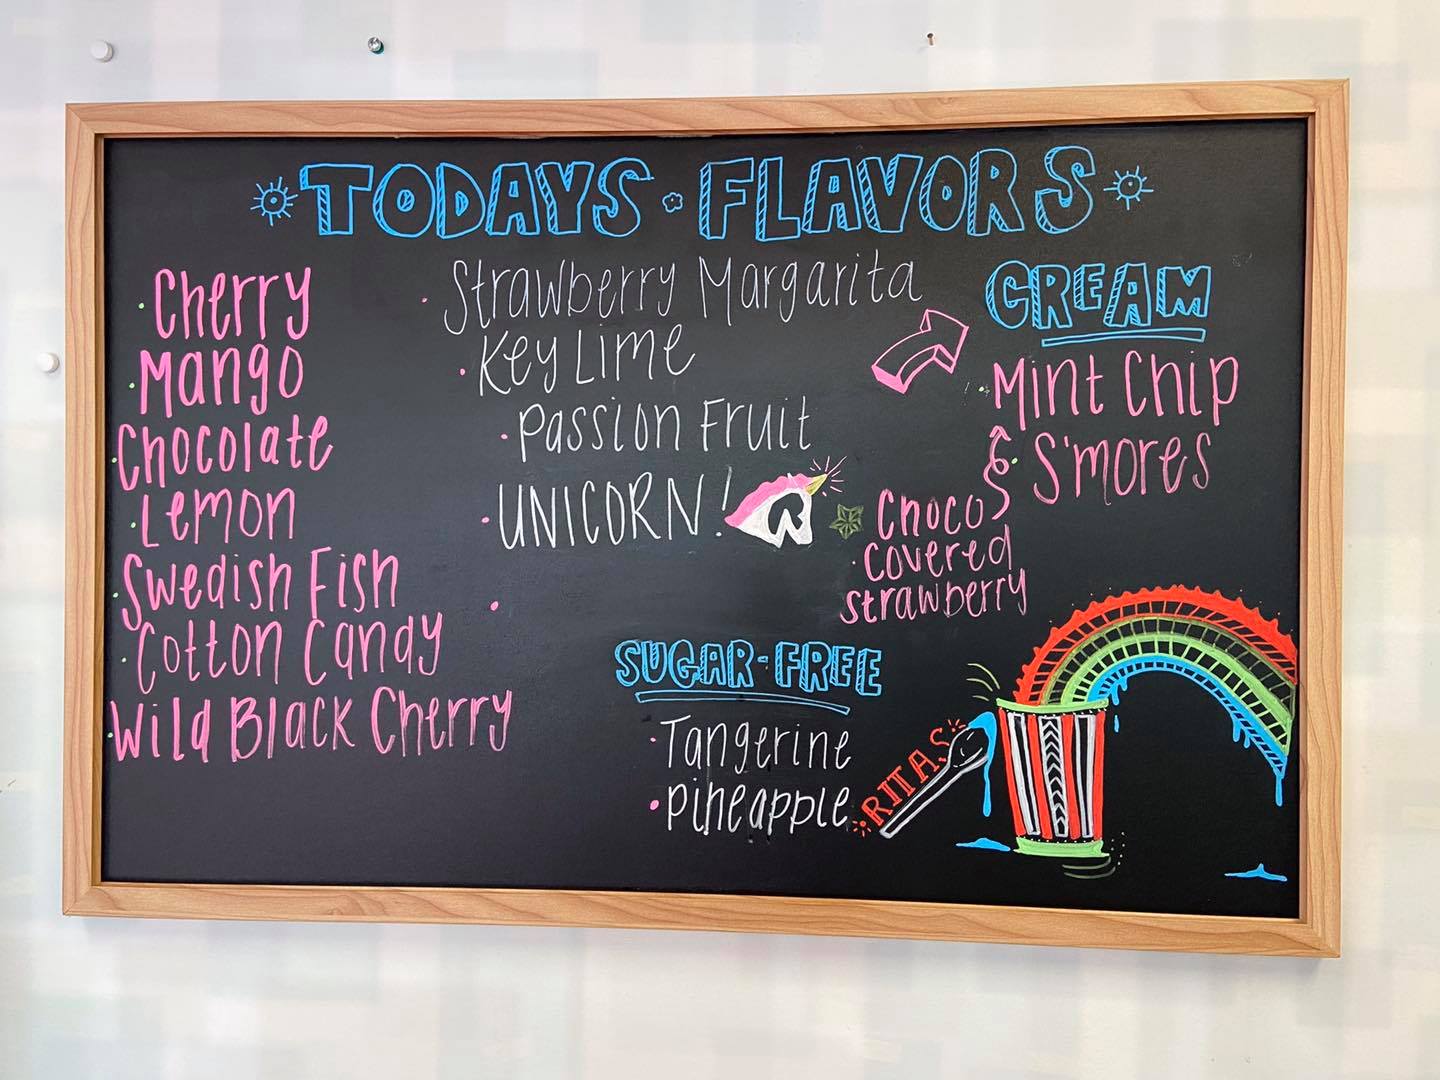 TODAYS FLAVORS
Cherry
Mango
Chocolate
Lemon
Swedish Fish
Cotton Candy
Wild Black Cherry
Strawberry Margarita
Key Lime
Passion Fruit
UNICORN!
R
CREAM
Mint Chip
S'mores
Choco
covered
strawberry
SUGAR-FREE
Tangerine
Pineapple
RITAS